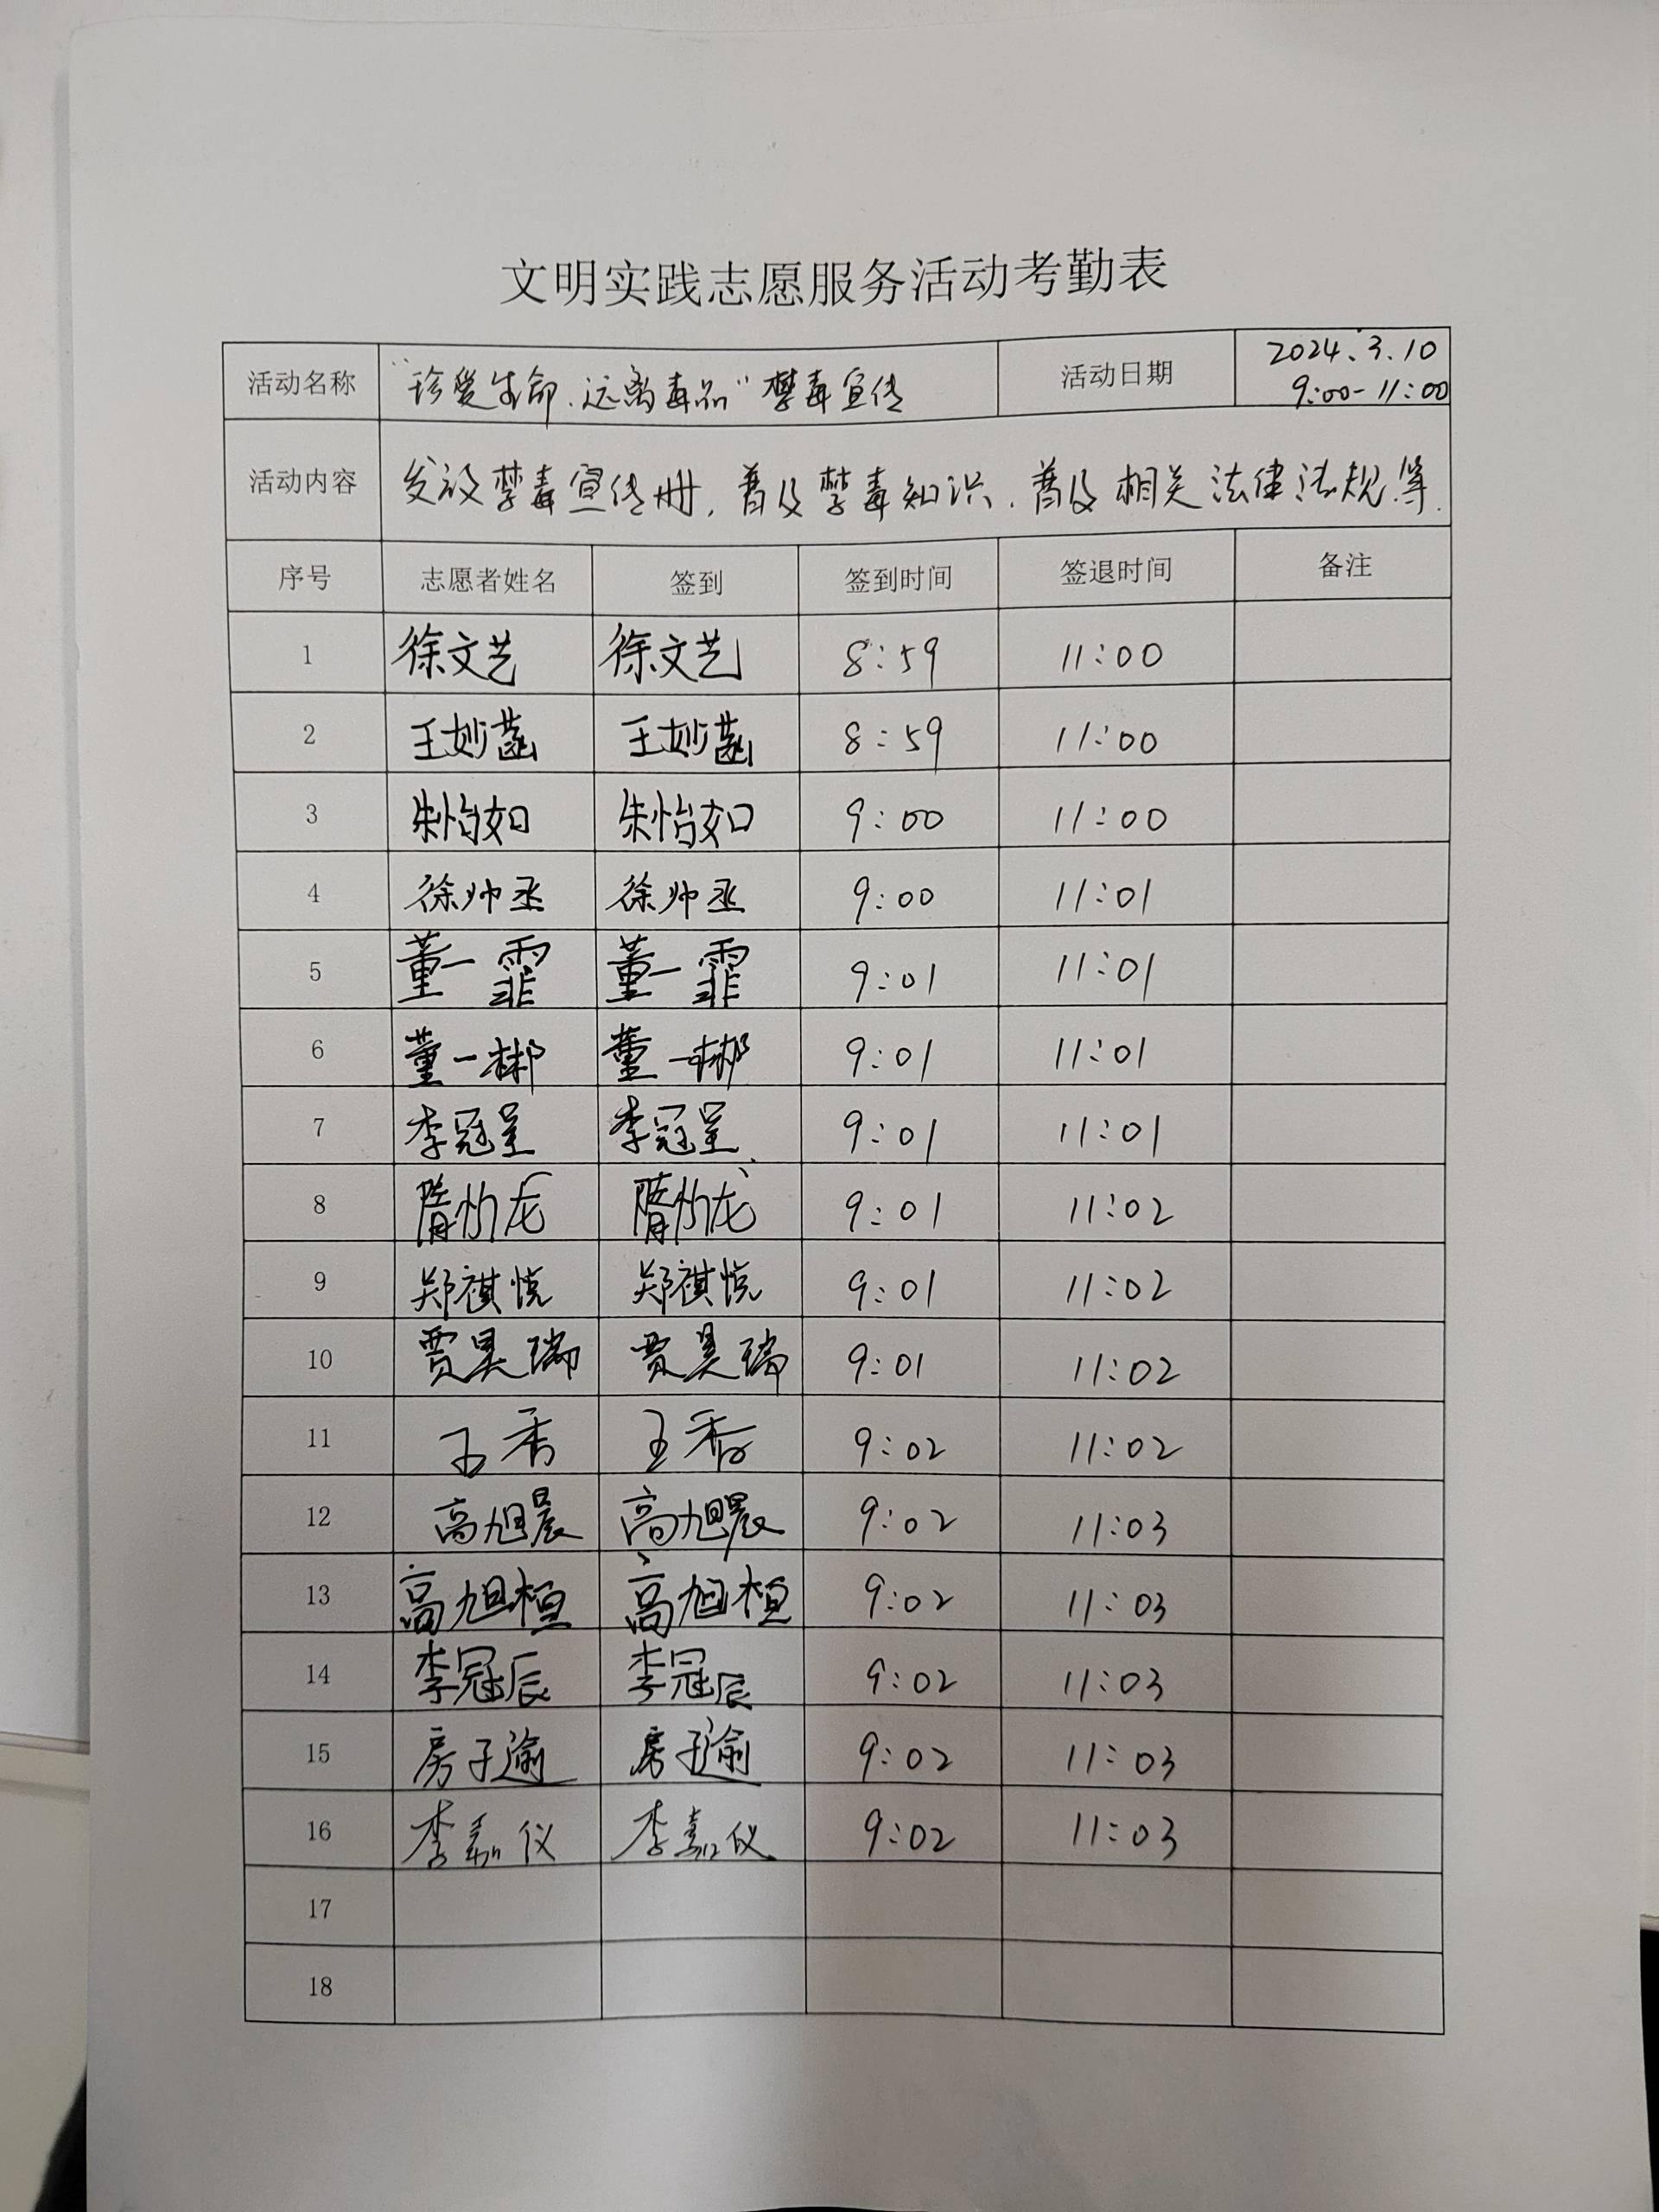 文明实践志愿服务活动考勤表
活动名称 "珍爱生命、远离毒品"禁毒宣传 活动日期 2024.3.10
9:00-11:00
活动内容 发放禁毒宣传册,普及禁毒知识,普及相关法律法规等.
序号 志愿者姓名 签到 签到时间 签退时间 备注
1 徐文艺 徐文艺 8:59 11:00
2 王妙菡 王妙菡 8:59 11:00
3 朱怡如 朱怡如 9:00 11:00
4 徐帅丞 徐帅丞 9:00 11:01
5 董一霏 董一霏 9:01 11:01
6 董一彬 董一 9:01 11:01
7 李冠呈 李冠呈 9:01 11:01
8 9:01 11:02
9 郑祺悦 郑祺悦 9:01 11:02
10 贾昊瑞 贾昊瑞 9:01 11:02
11 王秀 王秀 9:02 11:02
12 高旭晨 高旭晨 9:02 11:03
13 高旭桓 高旭桓 9:02 11:03
14 李冠辰 李冠辰 9:02 11:03
15 房子逾 房子逾 9:02 11:03
16 李嘉仪 李嘉仪 9:02 11:03
17
18